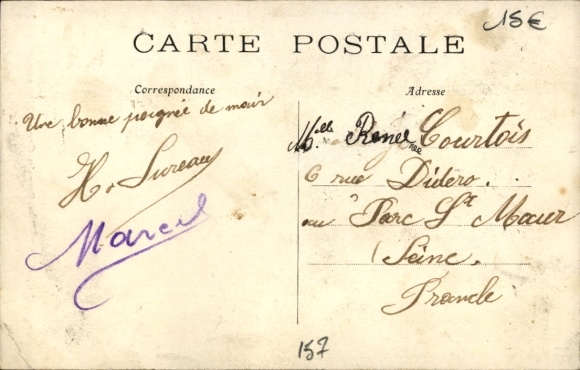 15€
CARTE POSTALE
Correspondance
Adresse
Une bonne poignée de main
H. Sureau
Marcel
Mlle Renée Courtois
6 rue Didero.
au Parc St Maur
(Seine.
France
157